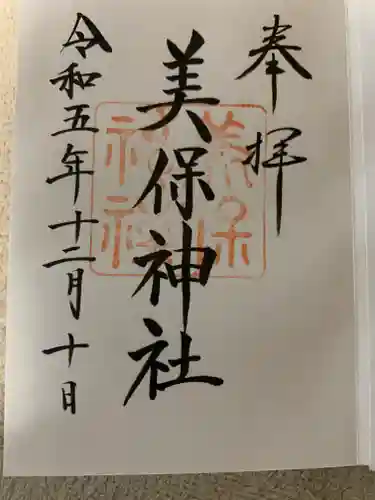 奉拝
美保神社
令和五年十二月十日
美保
神社